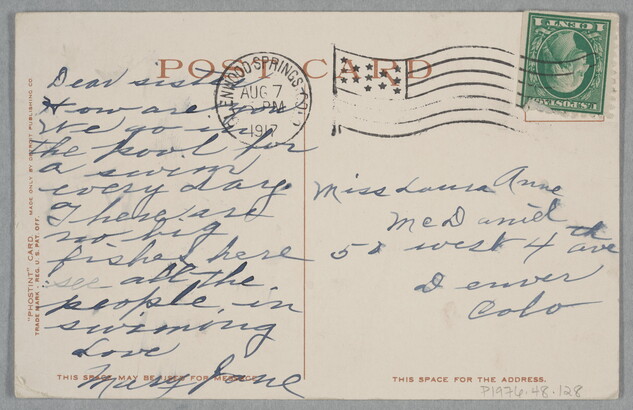 POST CARD
GLENWOOD SPRINGS, COLO.
AUG 7
PM
1917
Dear sister
How are you
We go in
the pool for
a swim
every day.
There are
no big
fishes here
see all the
people in
swiming
Love
Mary Jane
Miss Laura Anne
McDaniel
West 4th ave
Denver
Colo
"PHOSTINT" CARD. MADE ONLY BY DETROIT PUBLISHING CO.
TRADE MARK - REG. U. S. PAT. OFF.
THIS SPACE MAY BE USED FOR MESSAGE.
THIS SPACE FOR THE ADDRESS.
P1976-48-128